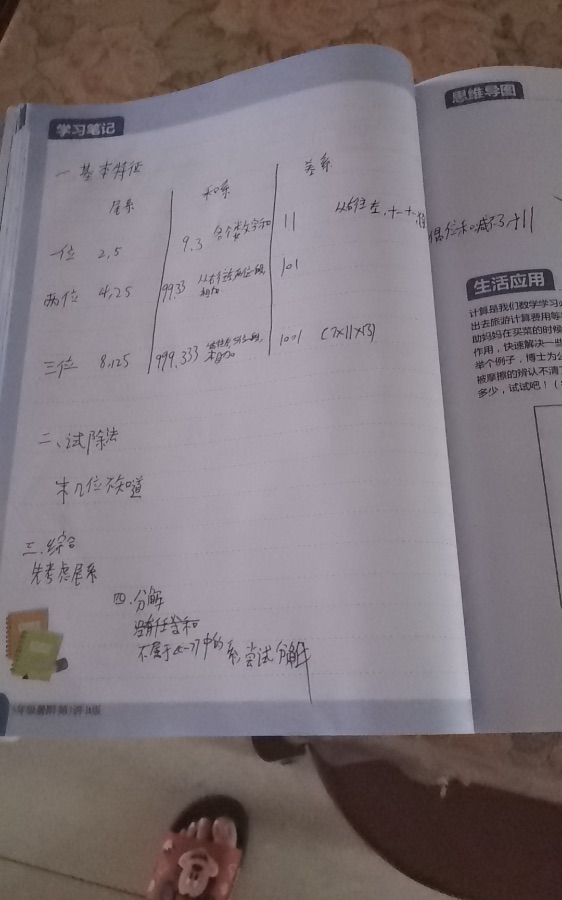 学习笔记
一 基本特征
尾系 和系 差系
一位 2,5 9.3 各个数字和 11 从右往左,
两位 4,25 99.33 从右往左两位一段 101
相加
三位 8,125 999.333 1001 (7×11×13)
相加
二、试除法
末几位不知道
三.综合
先考虑尾系
四.分解
不属于 中的系,尝试分解
思维导图
偶位和
生活应用
计算是我们数学学习
出去旅游计算费用等
助妈妈在买菜的时候
作用,快速解决一些
举个例子,博士为
被摩擦的辨认不清
多少,试试吧!(
年级暑期 第1讲